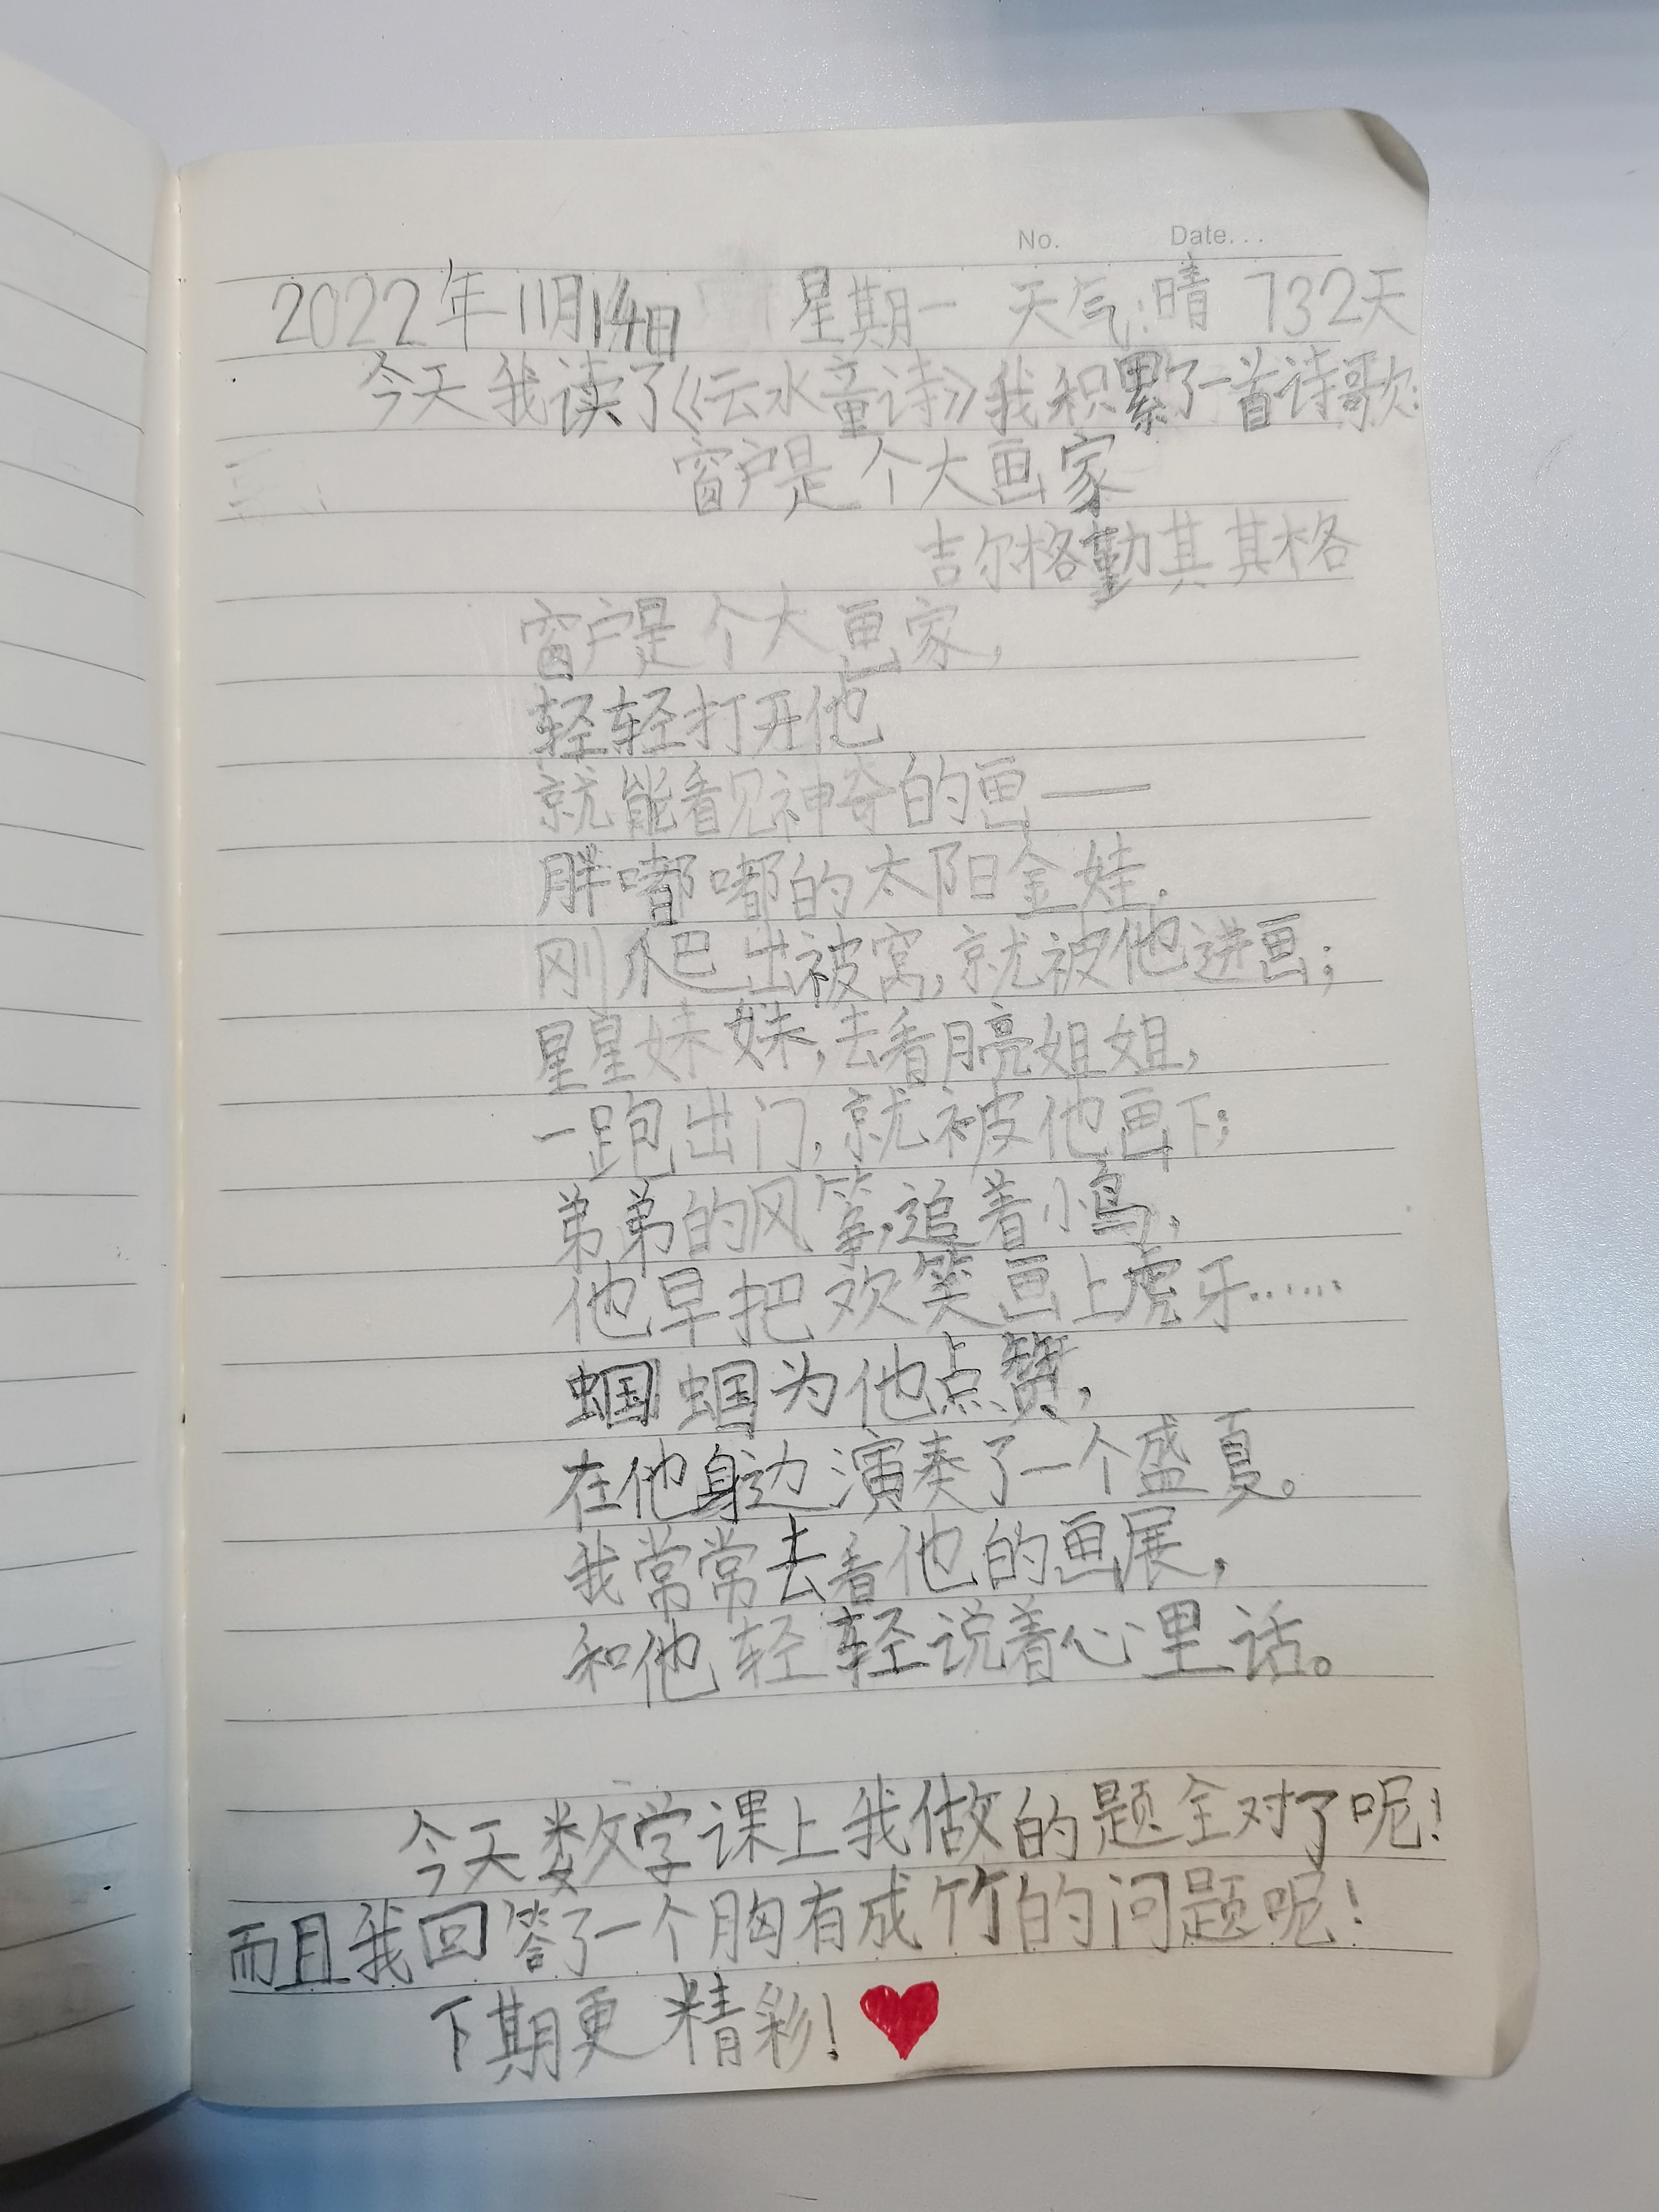 No. Date...
2022年11月14日 星期一 天气:晴 732天
今天我读了《云水童诗》我积累了一首诗歌:
窗户是个大画家
吉尔格勤其其格
窗户是个大画家,
轻轻打开他
就能看见神奇的画——
胖嘟嘟的太阳金娃.
刚爬出被窝,就被他进画;
星星妹妹,去看月亮姐姐,
一跑出门,就被他画下;
弟弟的风筝,追着小鸟,
他早把欢笑画上虎牙……
蝈蝈为他点赞,
在他身边演奏了一个盛夏。
我常常去看他的画展,
和他轻轻说着心里话。
今天数学课上我做的题全对了呢!
而且我回答了一个胸有成竹的问题呢!
下期更精彩!